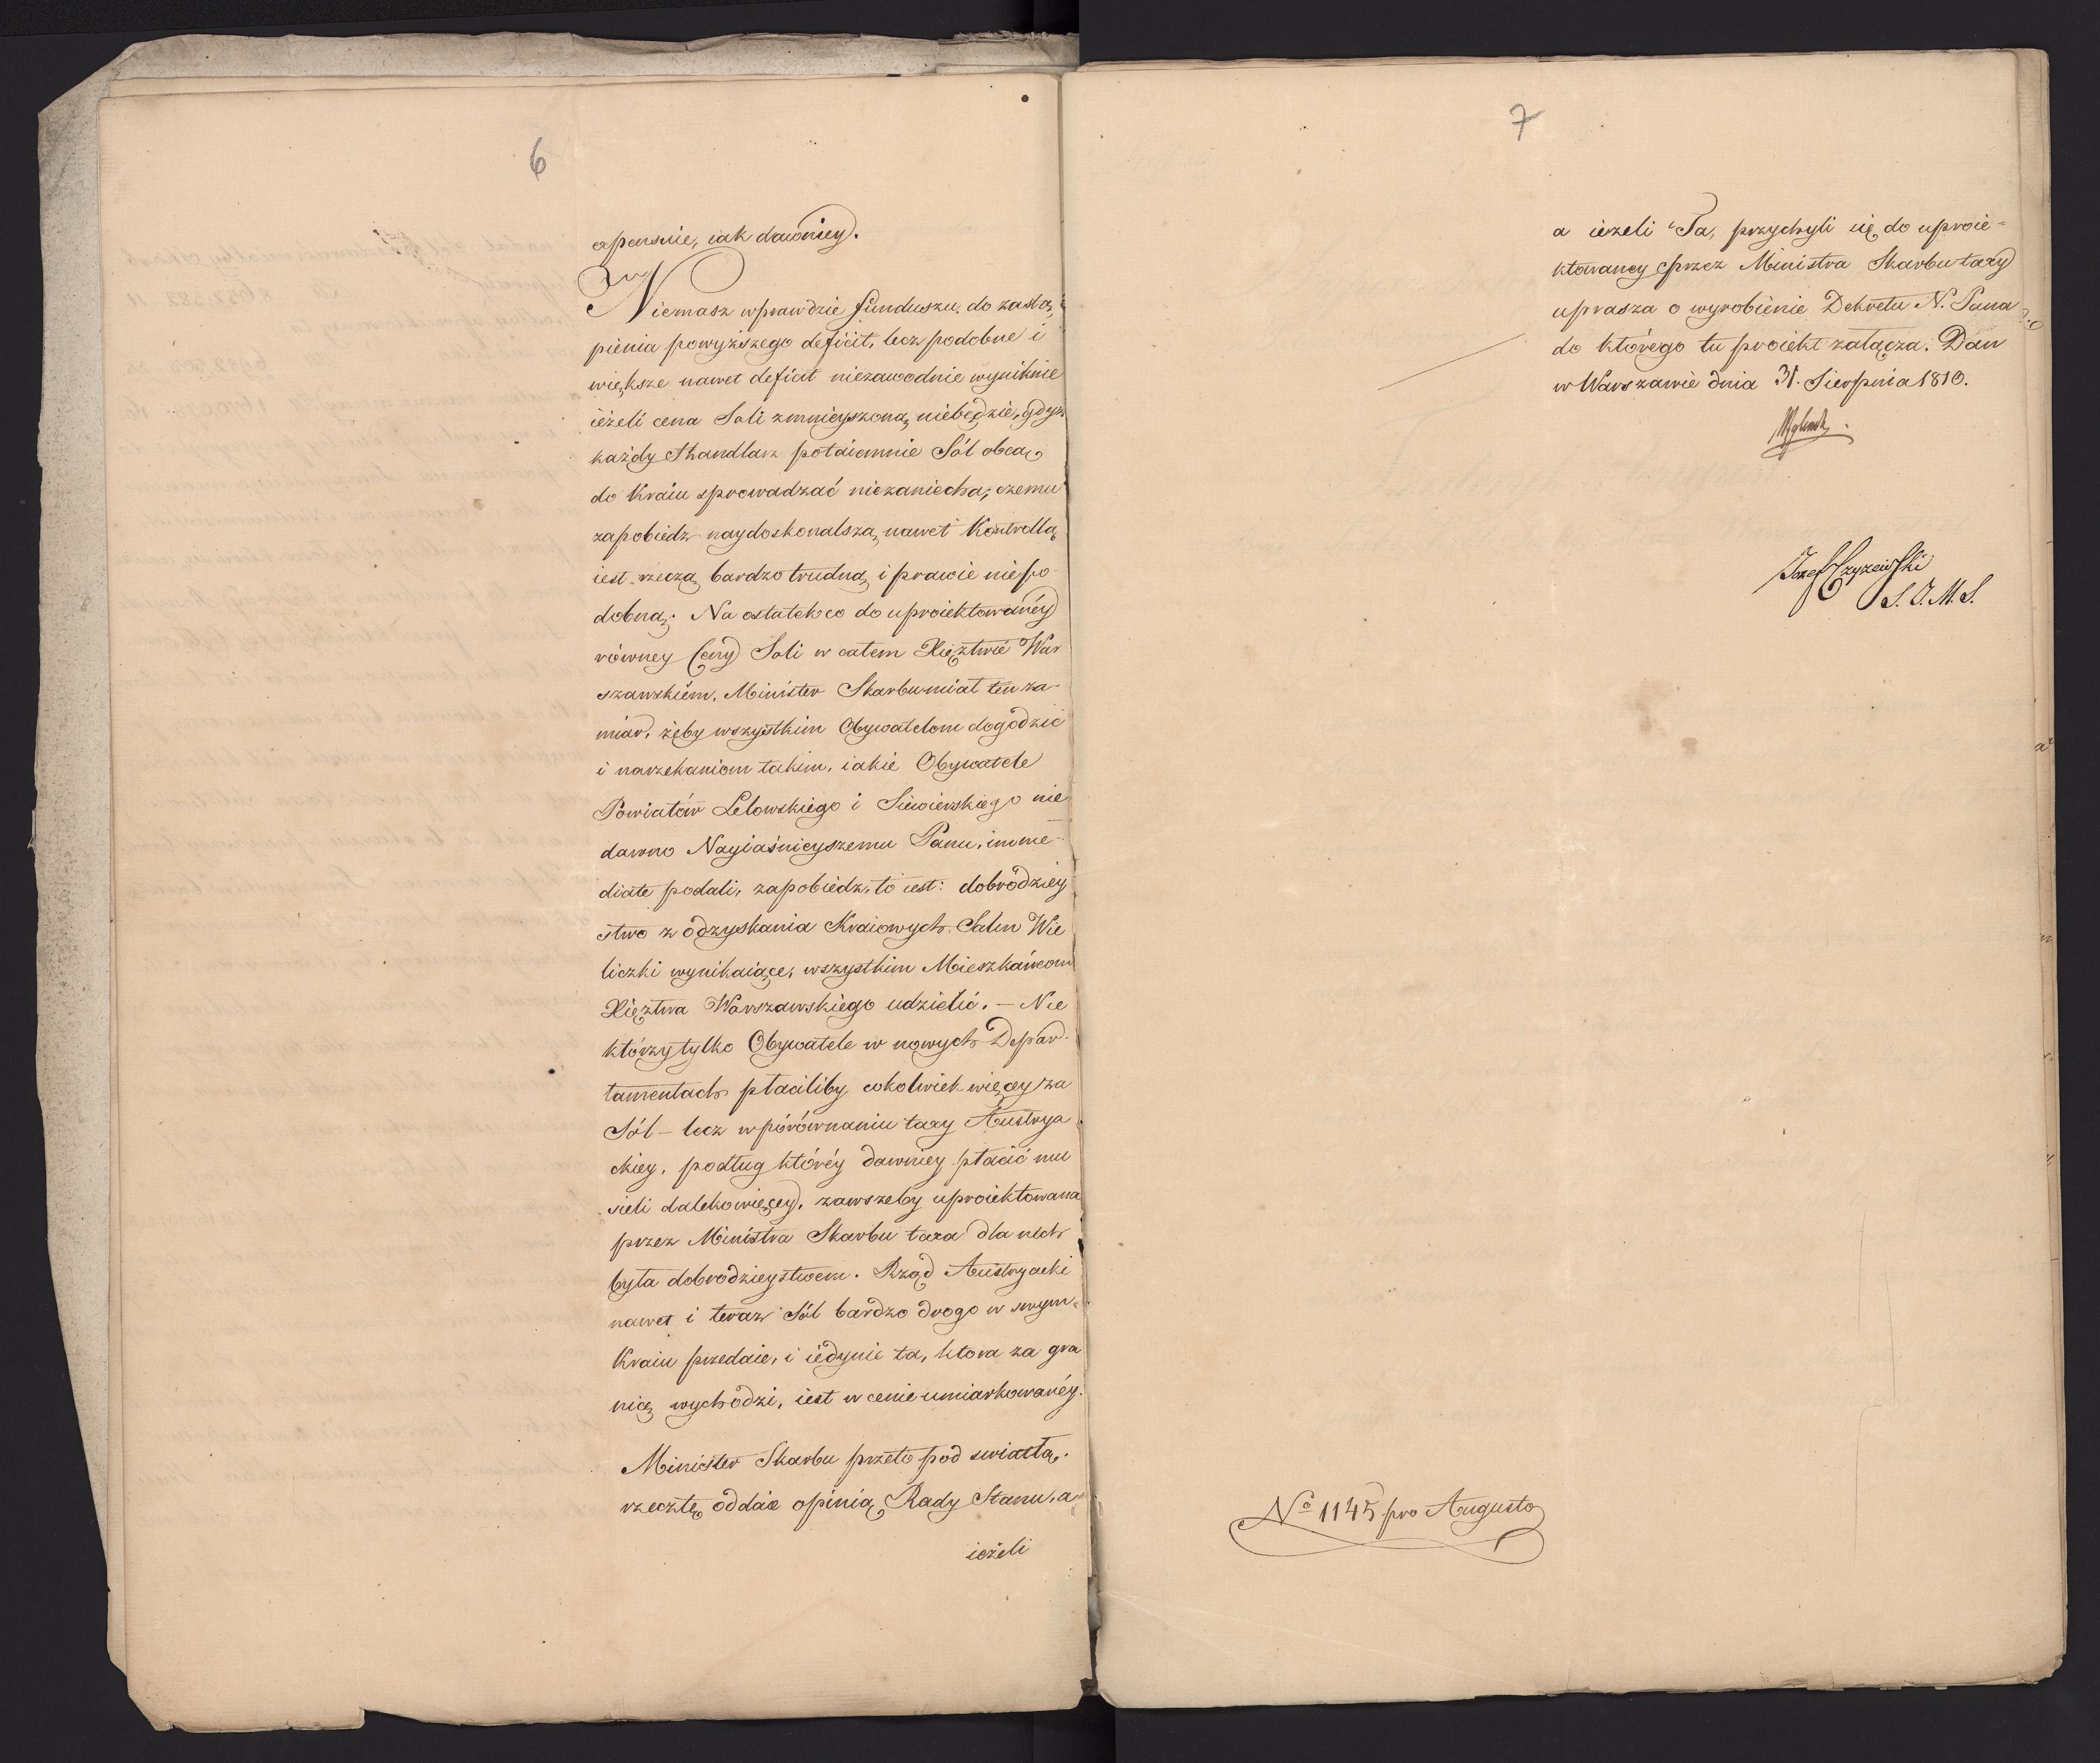 6
apensuie, iak dawniey.
Niemasz wprawdzie funduszu, do zastą,
pienia powyższego deficit, lecz podobne i
większe nawet deficit niezawodnie wyniknie
ieżeli cena Soli zmnieyszoną niebędzie, gdyż
każdy Handlarz potaiemnie Sól obcą
do Kraiu sprowadzać niezaniecha; czemu
zapobiedz naydoskonalszą nawet Kontrollą
iest rzeczą bardzo trudną i prawie niepo-
dobną. Na ostatek co do uproiektowanéy
równey Ceny Soli w całem Xięztwie War
szawskiém, Minister Skarbu miał ten za-
miar, żeby wszystkim Obywatelom dogodzić
i narzekaniom takim, iakie Obywatele
Powiatów Lelowskiego i Siewierskiego nie
dawno Nayiaśnieyszemu Panu, imme-
diate podali, zapobiedz, to iest: dobrodziey
stwo z odzyskania Kraiowych Salin Wie
liczki wynikaiące, wszystkim Mieszkańcom
Xięztwa Warszawskiego udzielić. – Nie
którzy tylko Obywatele w nowych Depar-
tamentach płaciliby cokolwiek więcey za
Sól – lecz w porównaniu taxy Austrya
ckiey, podług któréy dawniey płacić mu
sieli daleko więcey, zawszeby uproiektowana
przez Ministra Skarbu taxa dla nich
była dobrodzieystwem. Rząd Austryacki
nawet i teraz Sól bardzo drogo w swym
Kraiu przedaie, i iedynie ta, ktora za gra
nicę wychodzi, iest w cenie umiarkowanéy.
Minister Skarbu przeto pod swiatłą
rzecz tę oddaie opinią Rady Stanu, a
ieżeli
7
a ieżeli Ta, przychyli się do uproie-
ktowaney przez Ministra Skarbu taxy
uprasza o wyrobienie Dekretu N. Pana
do którego tu proiekt załącza. Dan
w Warszawie dnia 31. Sierpnia 1810.
Jozef Czyżewski
S. J. M. S.
No 1145 pro Augusto